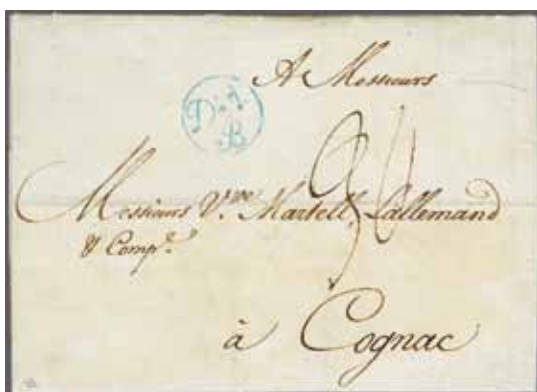 A Messieurs
D.2.
B
Messieurs V.ve Martell, Lallemand
& Comp.e
à Cognac